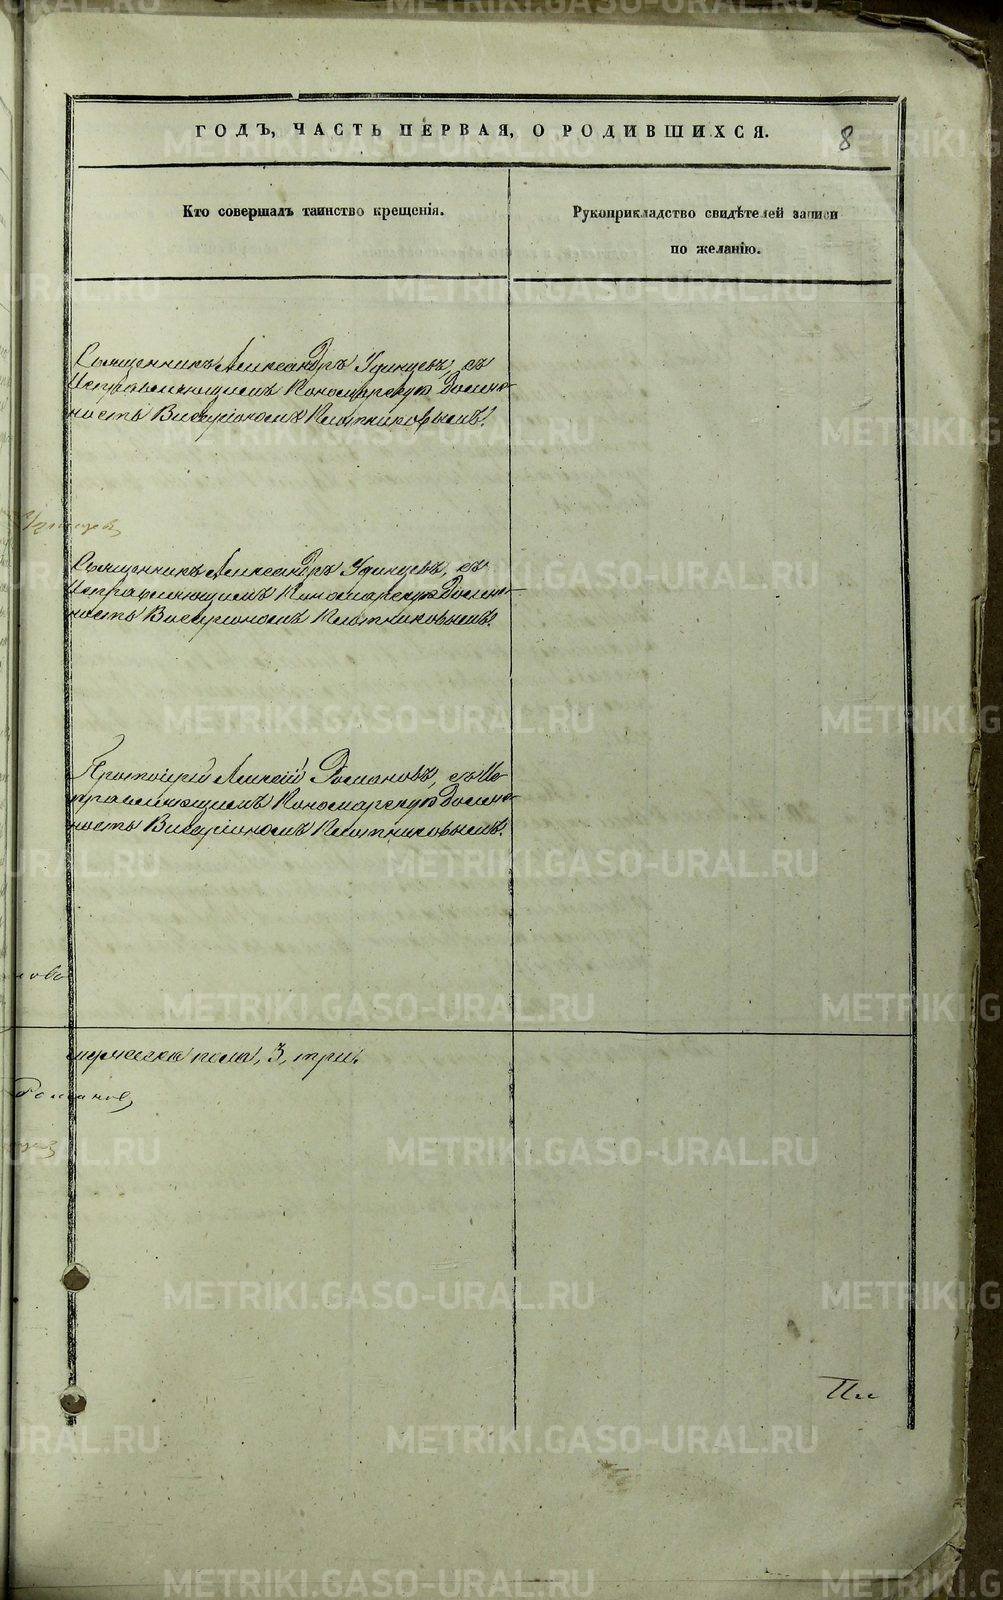 ГОДЪ, ЧАСТЬ ПЕРВАЯ, О РОДИВШИХСЯ.
8
Кто совершалъ таинство крещенія.
Рукоприкладство свидѣтелей записи
по желанію.
Священникъ Александръ Удинцевъ, съ
Исправляющимъ Пономарскую Долж-
ность Висаріономъ Плотниковымъ.
Удинцев
Священникъ Александръ Удинцевъ, съ
Исправляющимъ Пономарскую Долж-
ность Висаріономъ Плотниковымъ.
Протоіерей Алексій Романовъ, съ Ис-
правляющимъ Пономарскую Долж-
ность Висаріономъ Плотниковымъ.
мужеска пола, 3, три.
Романов
METRIKI.GASO-URAL.RU